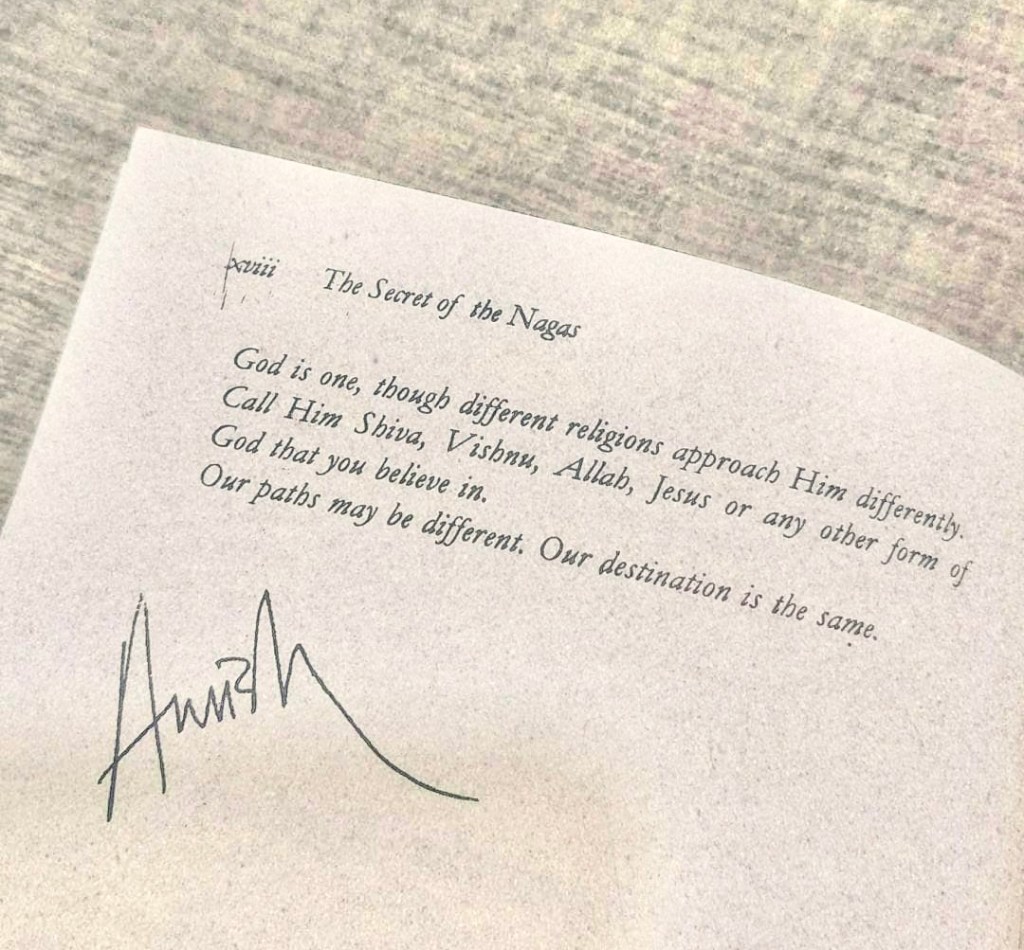 xviii The Secret of the Nagas
God is one, though different religions approach Him differently.
Call Him Shiva, Vishnu, Allah, Jesus or any other form of
God that you believe in.
Our paths may be different. Our destination is the same.
Amish